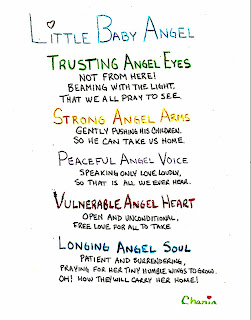 LITTLE BABY ANGEL
TRUSTING ANGEL EYES
NOT FROM HERE!
BEAMING WITH THE LIGHT,
THAT WE ALL PRAY TO SEE.
STRONG ANGEL ARMS
GENTLY PUSHING HIS CHILDREN,
SO HE CAN TAKE US HOME.
PEACEFUL ANGEL VOICE
SPEAKING ONLY LOVE LOUDLY,
SO THAT IS ALL WE EVER HEAR.
VULNERABLE ANGEL HEART
OPEN AND UNCONDITIONAL,
FREE LOVE FOR ALL TO TAKE
LONGING ANGEL SOUL
PATIENT AND SURRENDERING,
PRAYING FOR HER TINY HUMBLE WINGS TO GROW.
OH! HOW THEY'LL CARRY HER HOME!
Chania